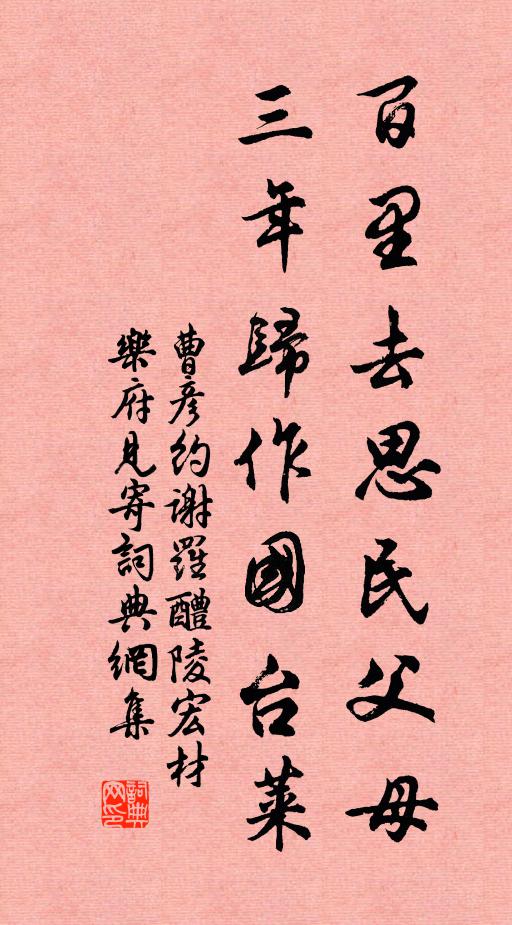 百里去思民父母
三年歸作國台萊
曹彥約谢羅醴陵宏材
樂府見寄詞典網集
詞典网印